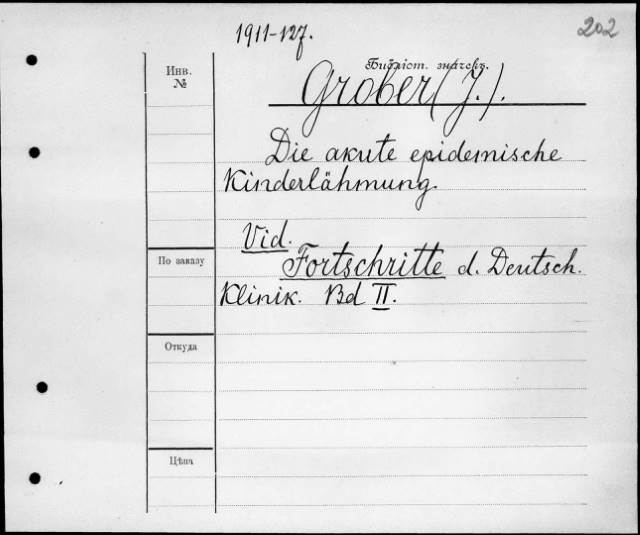 1911-127.
202
Инв.
№
Библіот. значекъ.
Grober (J.).
Die akute epidemische
Kinderlähmung.
Vid.
По заказу
Fortschritte d. Deutsch.
Klinik. Bd II.
Откуда
Цѣна